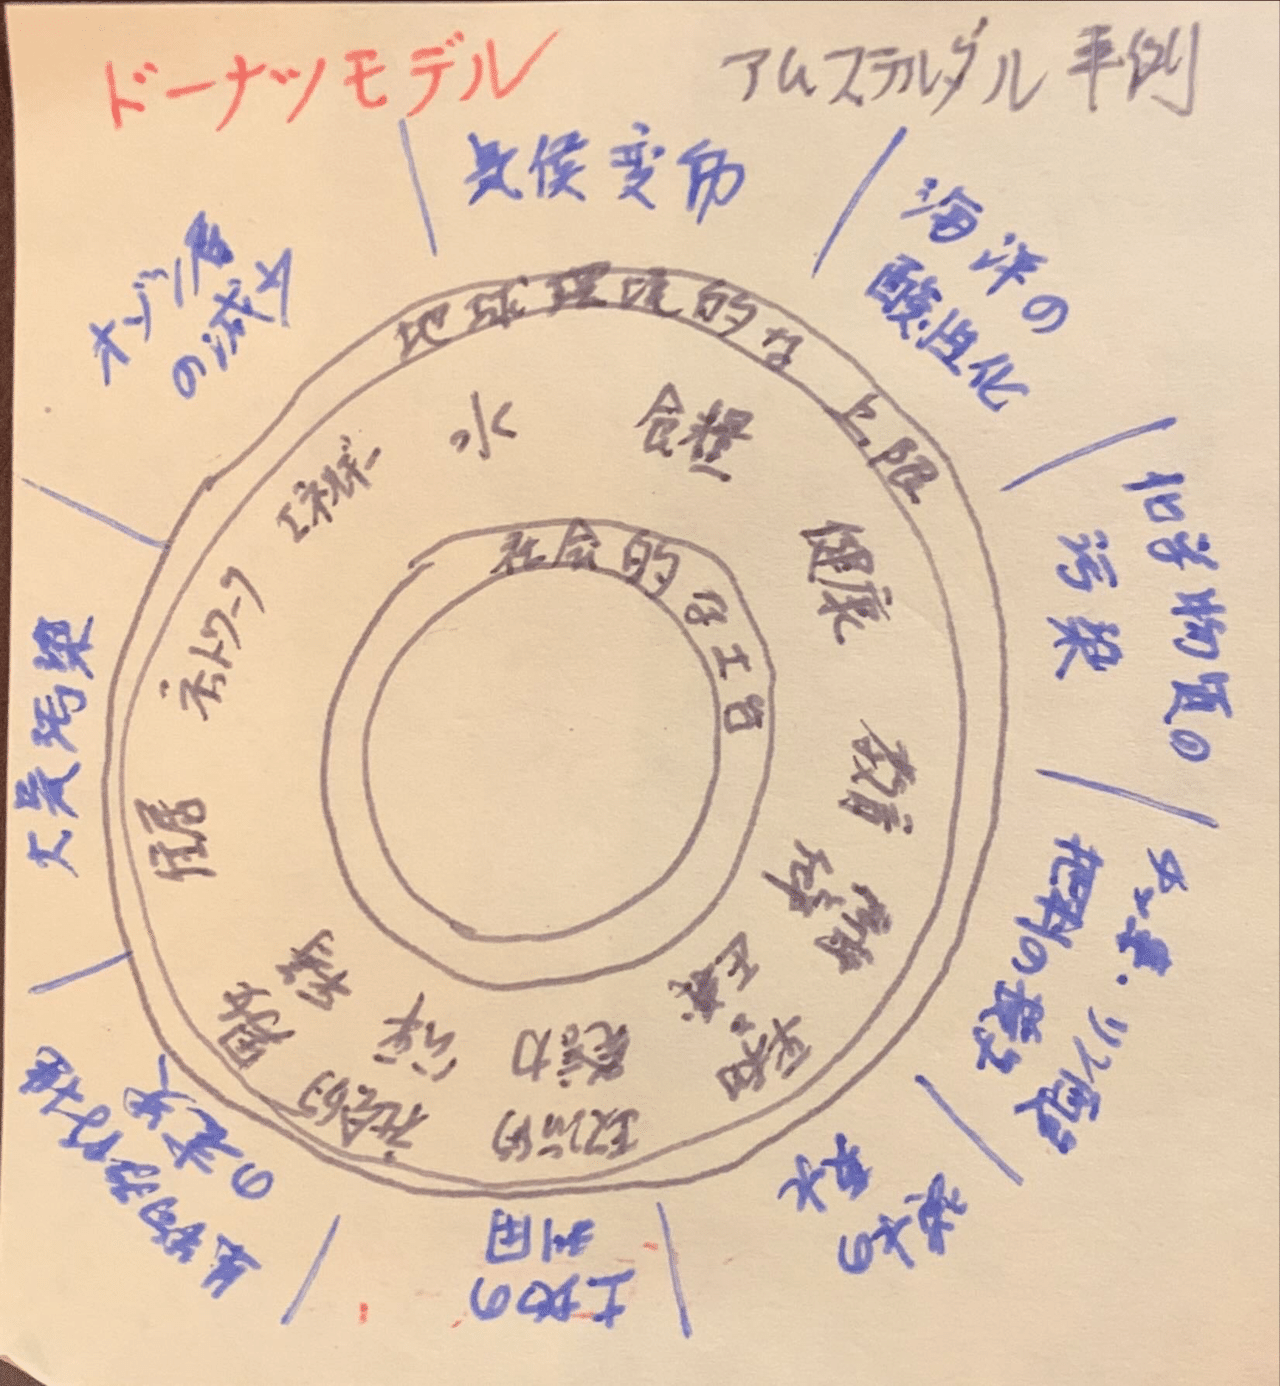 ドーナツモデル
アムステルダム事例
気候変動
海洋の
酸性化
化学物質の
汚染
チッ素・リン酸
肥料の投与
淡水の
取水
土地の
利用
生物多様性
の喪失
大気汚染
オゾン層
の減少
地球環境的な上限
水
食糧
健康
教育
所得
仕事
平和と
正義
政治的
発言力
社会的
公平
男女
平等
住居
ネットワーク
エネルギー
社会的な土台